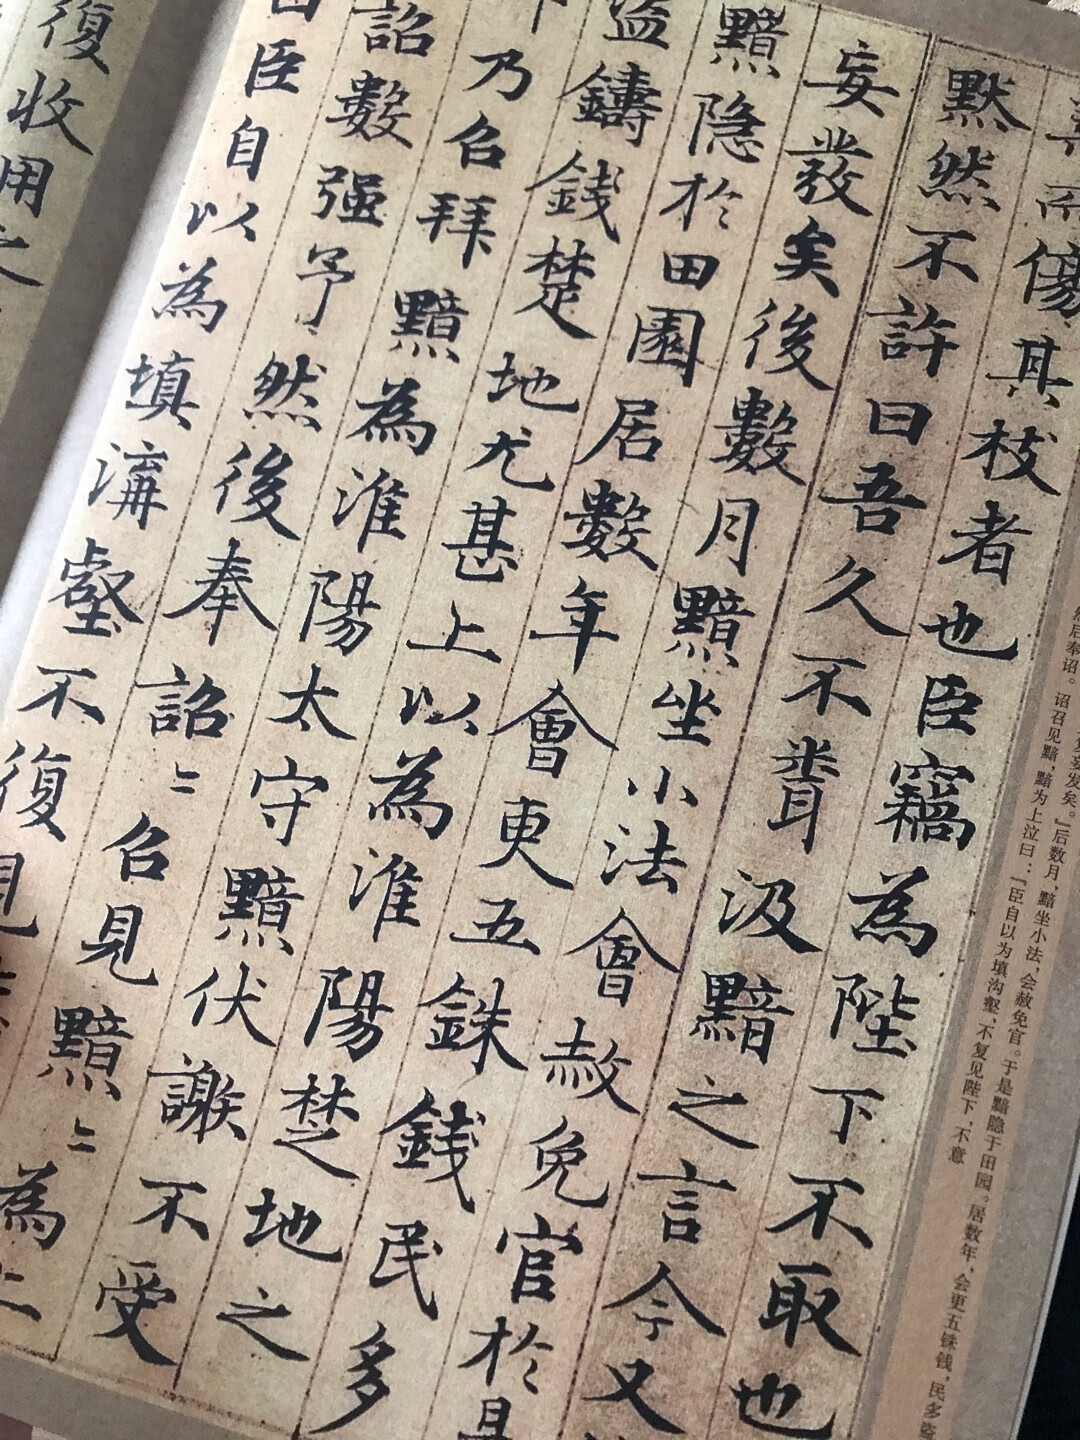 而傷其枝者也臣竊為陛下不取也
默然不許曰吾久不聞汲黯之言今又
妄發矣後數月黯坐小法會赦免官於是
黯隐於田園居數年會更五銖錢民多
盗鑄錢楚地尤甚上以為淮陽楚地之
乃召拜黯為淮陽太守黯伏謝不受
詔數强予然後奉詔〻召見黯〻為上
曰臣自以為填溝壑不復見
復收用之
然后奉诏。诏召见黯，黯为上泣曰：『臣自以为填沟壑，不复见陛下，不意
妄发矣。』后数月，黯坐小法，会赦免官。于是黯隐于田园。居数年，会更五铢钱，民多盗